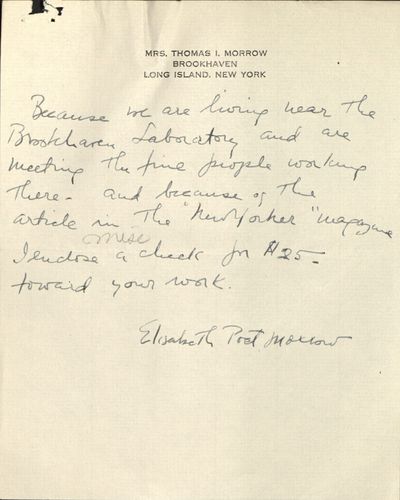 MRS. THOMAS I. MORROW
BROOKHAVEN
LONG ISLAND, NEW YORK
Because we are living near the
Brookhaven Laboratory and are
meeting the fine people working
there - and because of the
article in The "New Yorker" magazine
I enclose a check for $25-
toward your work.
Elisabeth Post Morrow